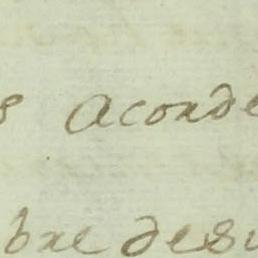 s aconde
bre desu